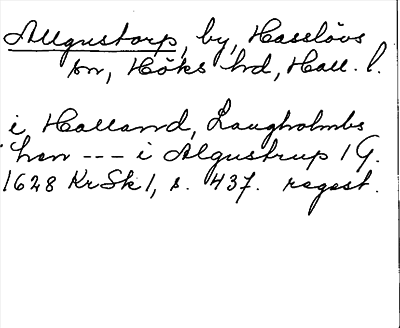 Allgustorp, by, Hasslövs
sn, Höks hd, Hall. l.
i Halland, Laugholmbs
han --- i Algustrup 1 G.
1628 KrSk 1, s. 437. regest.